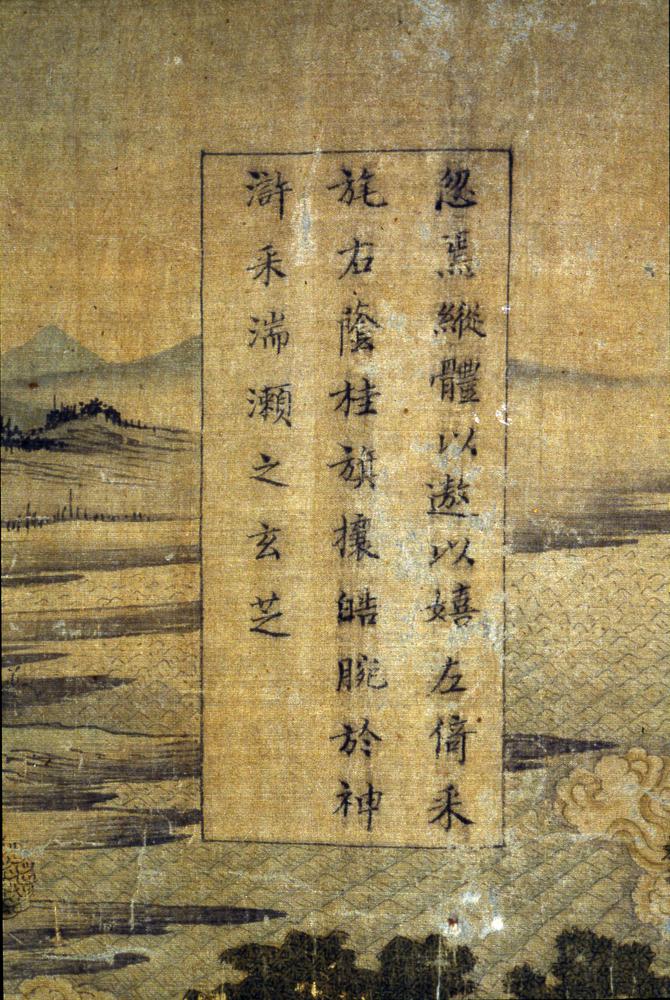 忽焉縱體以遨以嬉左倚采
旄右蔭桂旗攘皓腕於神
滸采湍瀨之玄芝